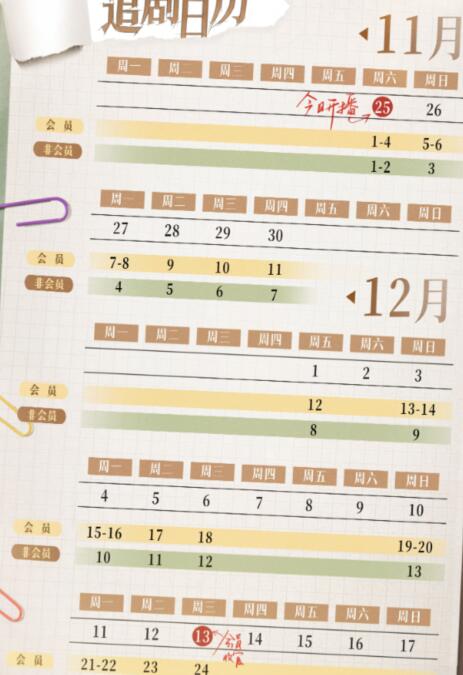 追剧日历
11月
周一 周二 周三 周四 周五 周六 周日
今日开播 25 26
会员 1-4 5-6
非会员 1-2 3
周一 周二 周三 周四 周五 周六 周日
27 28 29 30
会员 7-8 9 10 11
非会员 4 5 6 7
12月
周一 周二 周三 周四 周五 周六 周日
1 2 3
会员 12 13-14
非会员 8 9
周一 周二 周三 周四 周五 周六 周日
4 5 6 7 8 9 10
会员 15-16 17 18 19-20
非会员 10 11 12 13
周一 周二 周三 周四 周五 周六 周日
11 12 13 会员收官 14 15 16 17
会员 21-22 23 24